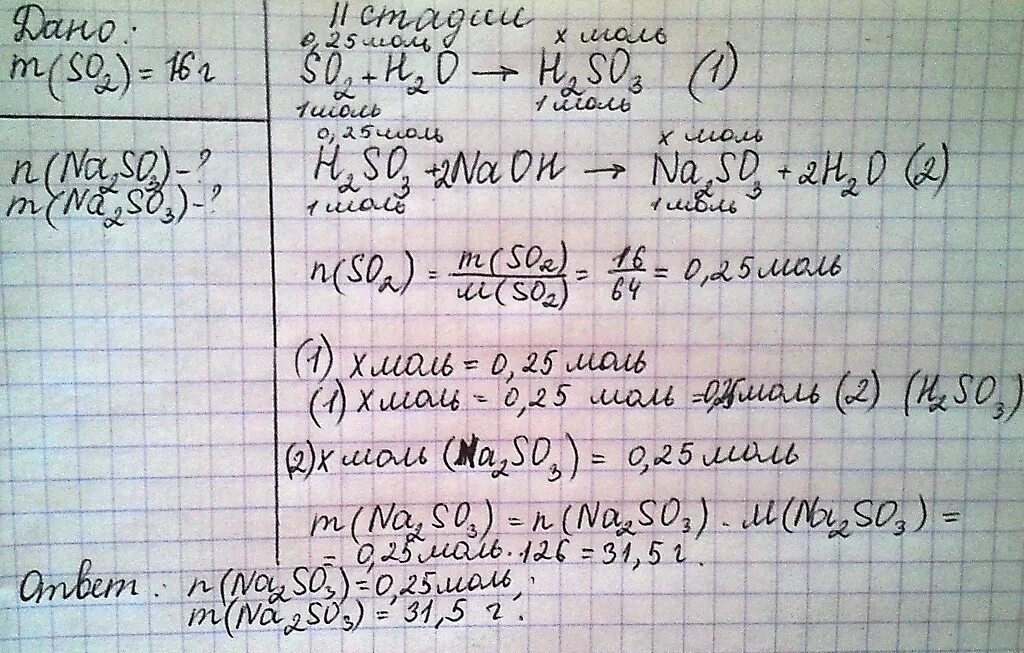 Дано:
m(SO₂) = 16 г
n(Na₂SO₃) - ?
m(Na₂SO₃) - ?
II стадии
0,25 моль x моль
SO₂ + H₂O → H₂SO₃ (1)
1 моль 1 моль
0,25 моль x моль
H₂SO₃ + 2NaOH → Na₂SO₃ + 2H₂O (2)
1 моль 1 моль
n(SO₂) = m(SO₂)/M(SO₂) = 16/64 = 0,25 моль
(1) x моль = 0,25 моль
(1) x моль = 0,25 моль = 0,25 моль (2) (H₂SO₃)
(2) x моль (Na₂SO₃) = 0,25 моль
m(Na₂SO₃) = n(Na₂SO₃) · M(Na₂SO₃) =
= 0,25 моль · 126 = 31,5 г.
Ответ: n(Na₂SO₃) = 0,25 моль;
m(Na₂SO₃) = 31,5 г.